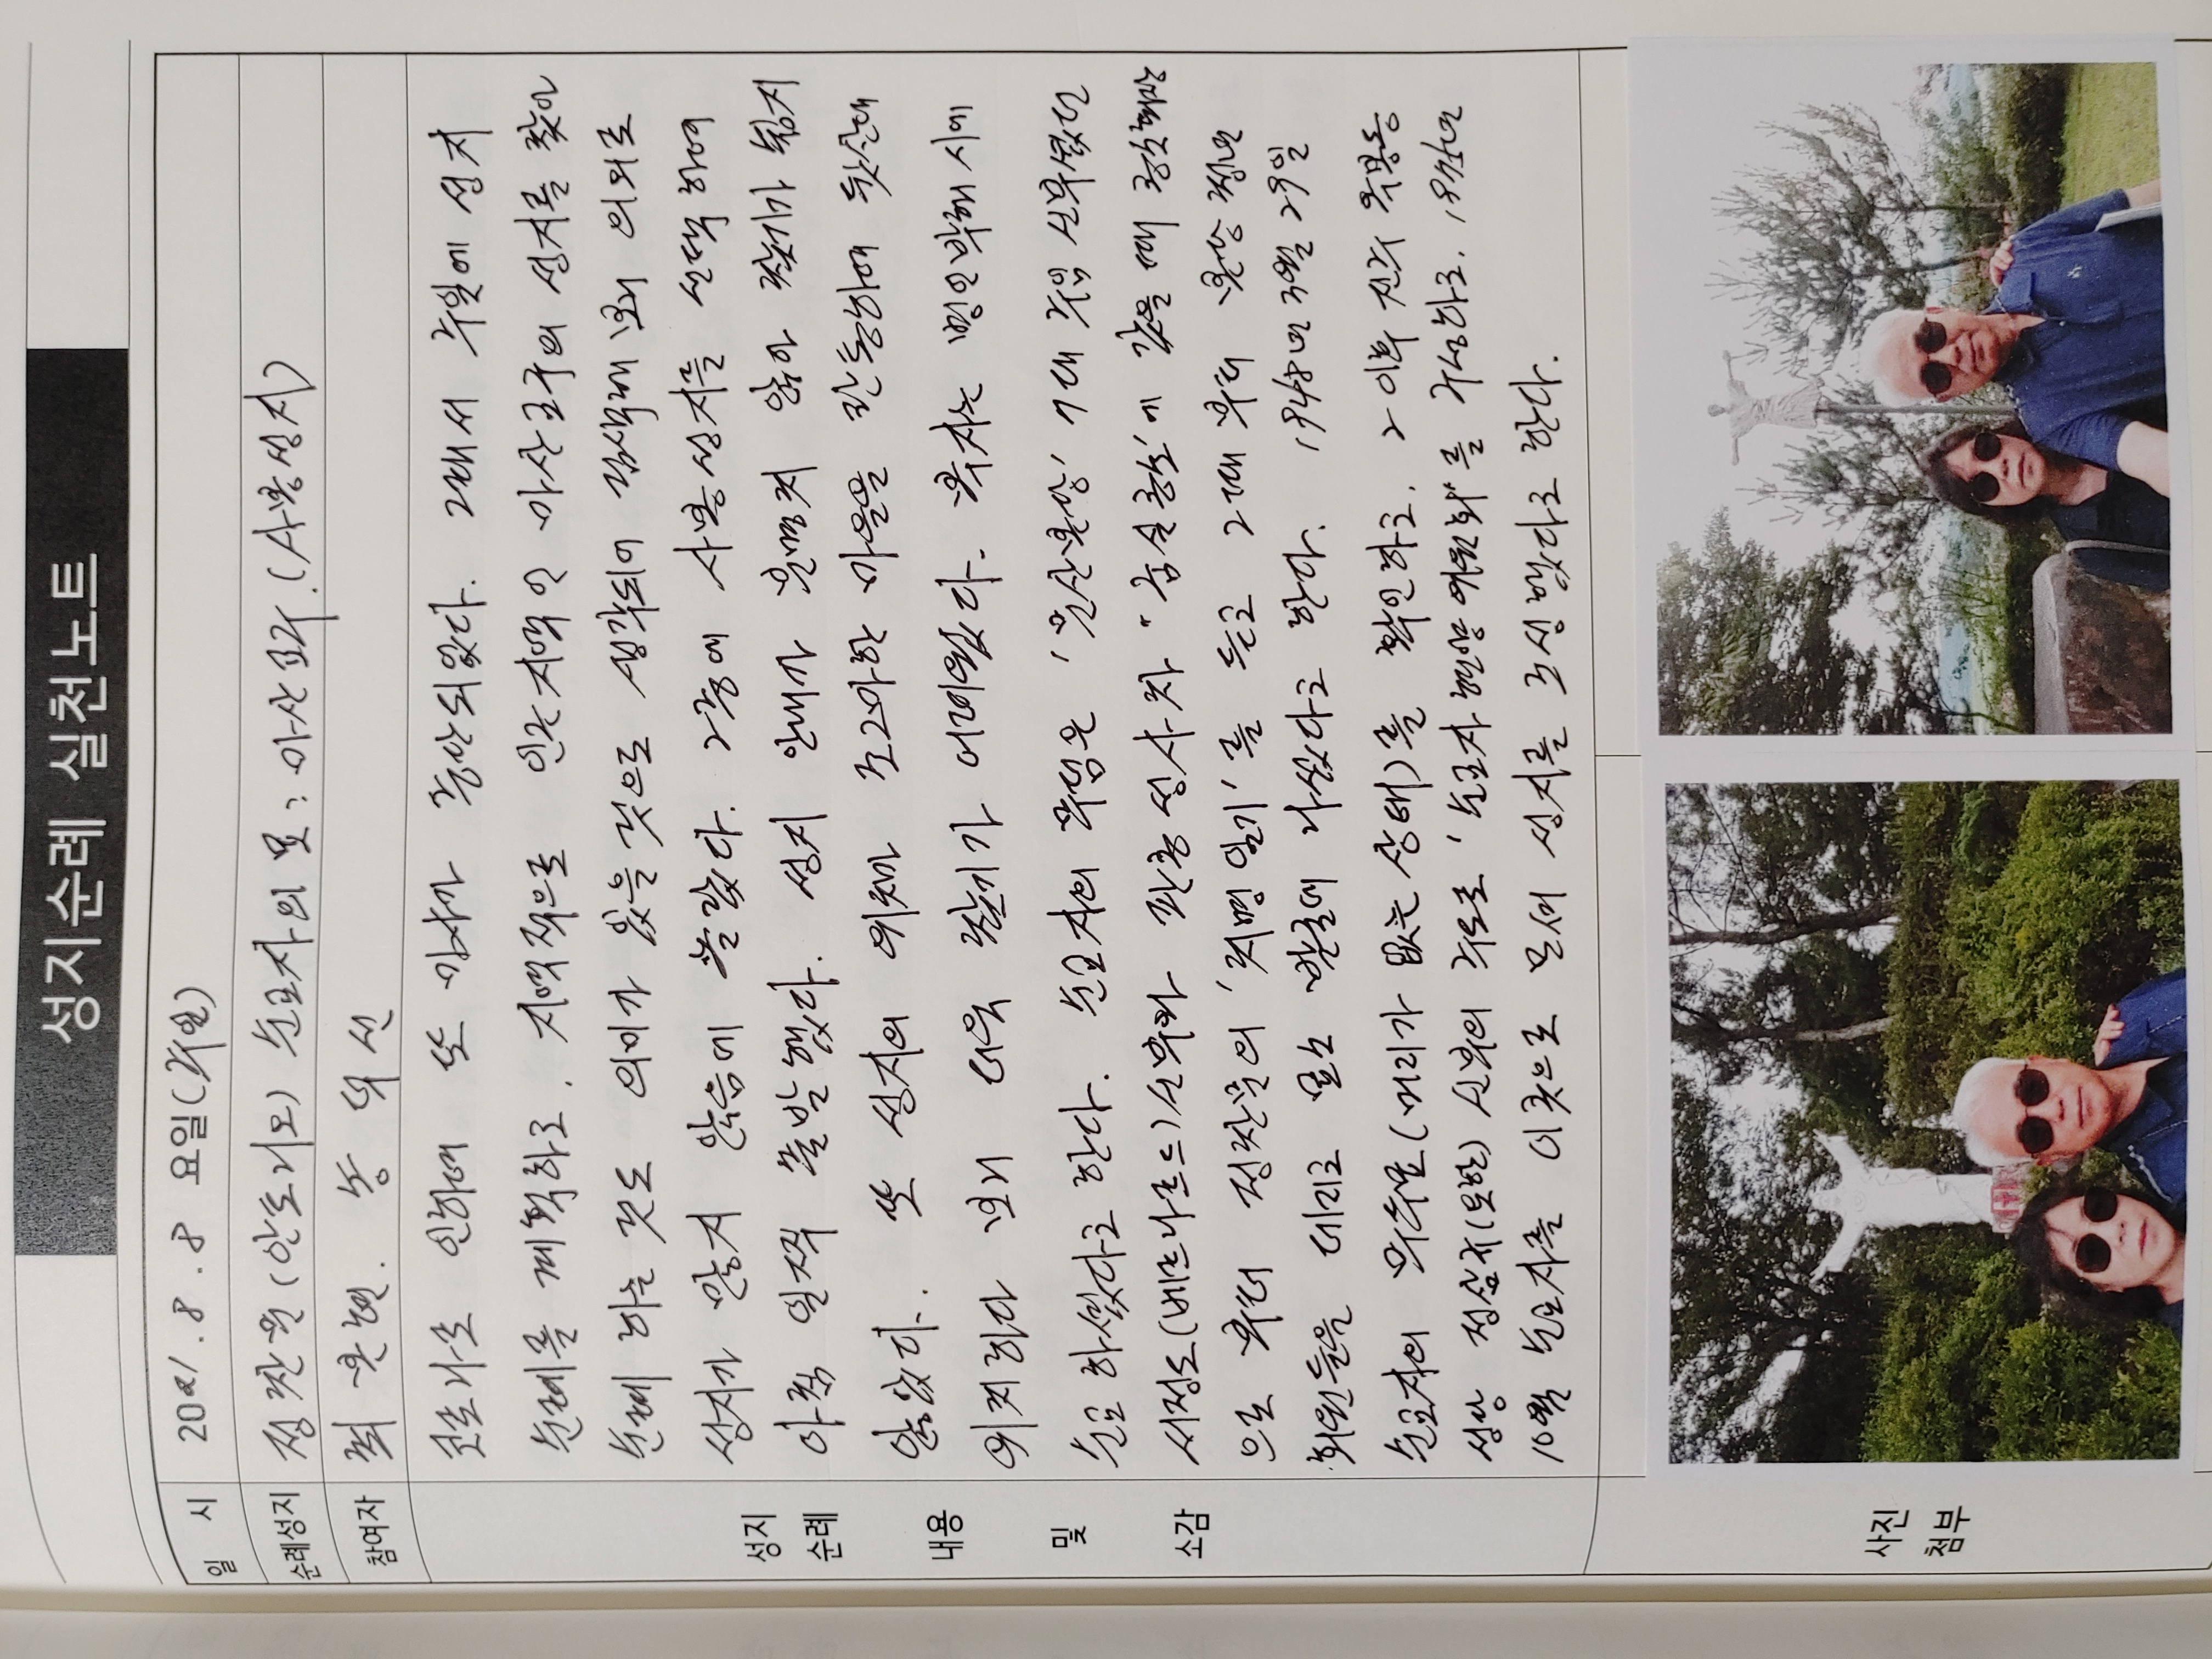 성지순례 실천노트
일 시 2021.8.8 요일(주일)
순례성지 정찬문(안토니오) 순교자의 묘: 마산교구.(사봉성지)
참여자 최 본현. 송 덕선
코로나로 인하여 또 미사가 중단되었다. 그래서 주일에 성지
순례를 계획하고, 지역적으로 인근지역인 마산교구의 성지를 찾아
순례 하는 것도 의미가 있을 것으로 생각되어 검색해 보니 의외로
성지가 많지 않음에 놀랐다. 그중에 사봉성지를 선택하여
아침 일찍 출발했다. 성지 안내가 분명치 않아 찾기가 쉽지
않았다. 또 성지의 위치가 조그마한 마을을 관통하여 뒷산에
위치하다 보니 더욱 찾기가 어려웠다. 묘지는 병인박해 시에
순교 하셨다고 한다. 순교자의 무덤은 '문산본당' 7대 주임 신부셨던
서정도(베르나르드)신부와 판공성사차 "공실공소'에 갔을 때 공소회장
으로 부터 정찬문의 '치명일기'를 듣고 그때 부터 본당 청년
회원들을 데리고 묘소 발굴에 나섰다고 한다. 1948년 3월 29일
순교자의 무두묘(머리가 없는 상태)를 확인하고, 그 이후 진주 옥봉동
성당 정삼규(요한) 신부의 주도로 '순교자 현양 위원회'를 구성하고, 1975년
10월 순교자를 이곳으로 모셔 성지를 조성했다고 한다.
성지
순례
내용
및
소감
사진
첨부